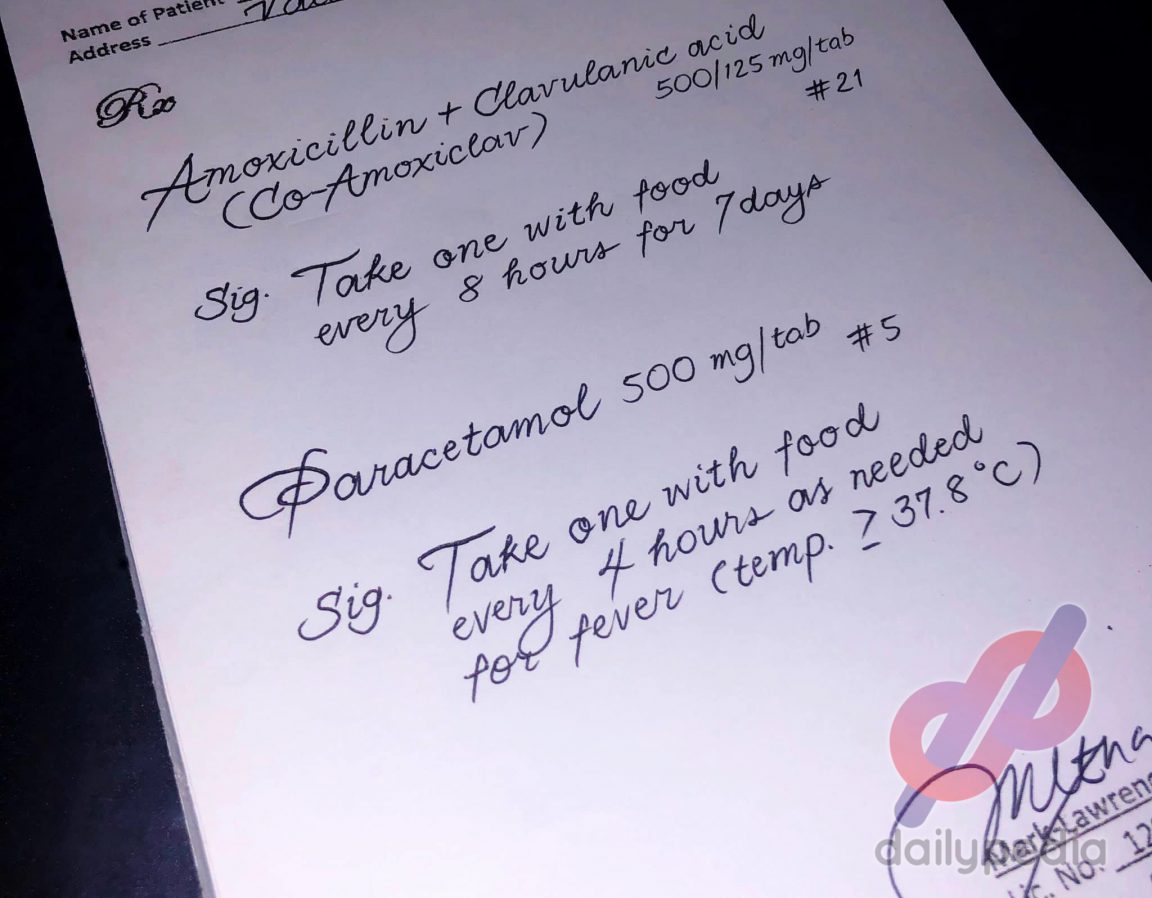 Name of Patient
Address
Rx
Amoxicillin + Clavulanic acid
500/125 mg/tab
(Co-Amoxiclav)
#21
Sig. Take one with food
every 8 hours for 7 days
Paracetamol 500 mg/tab #5
Sig. Take one with food
every 4 hours as needed
for fever (temp. ≥ 37.8°C)
Mark Lawrenc
Lic. No. 12
dailypedia